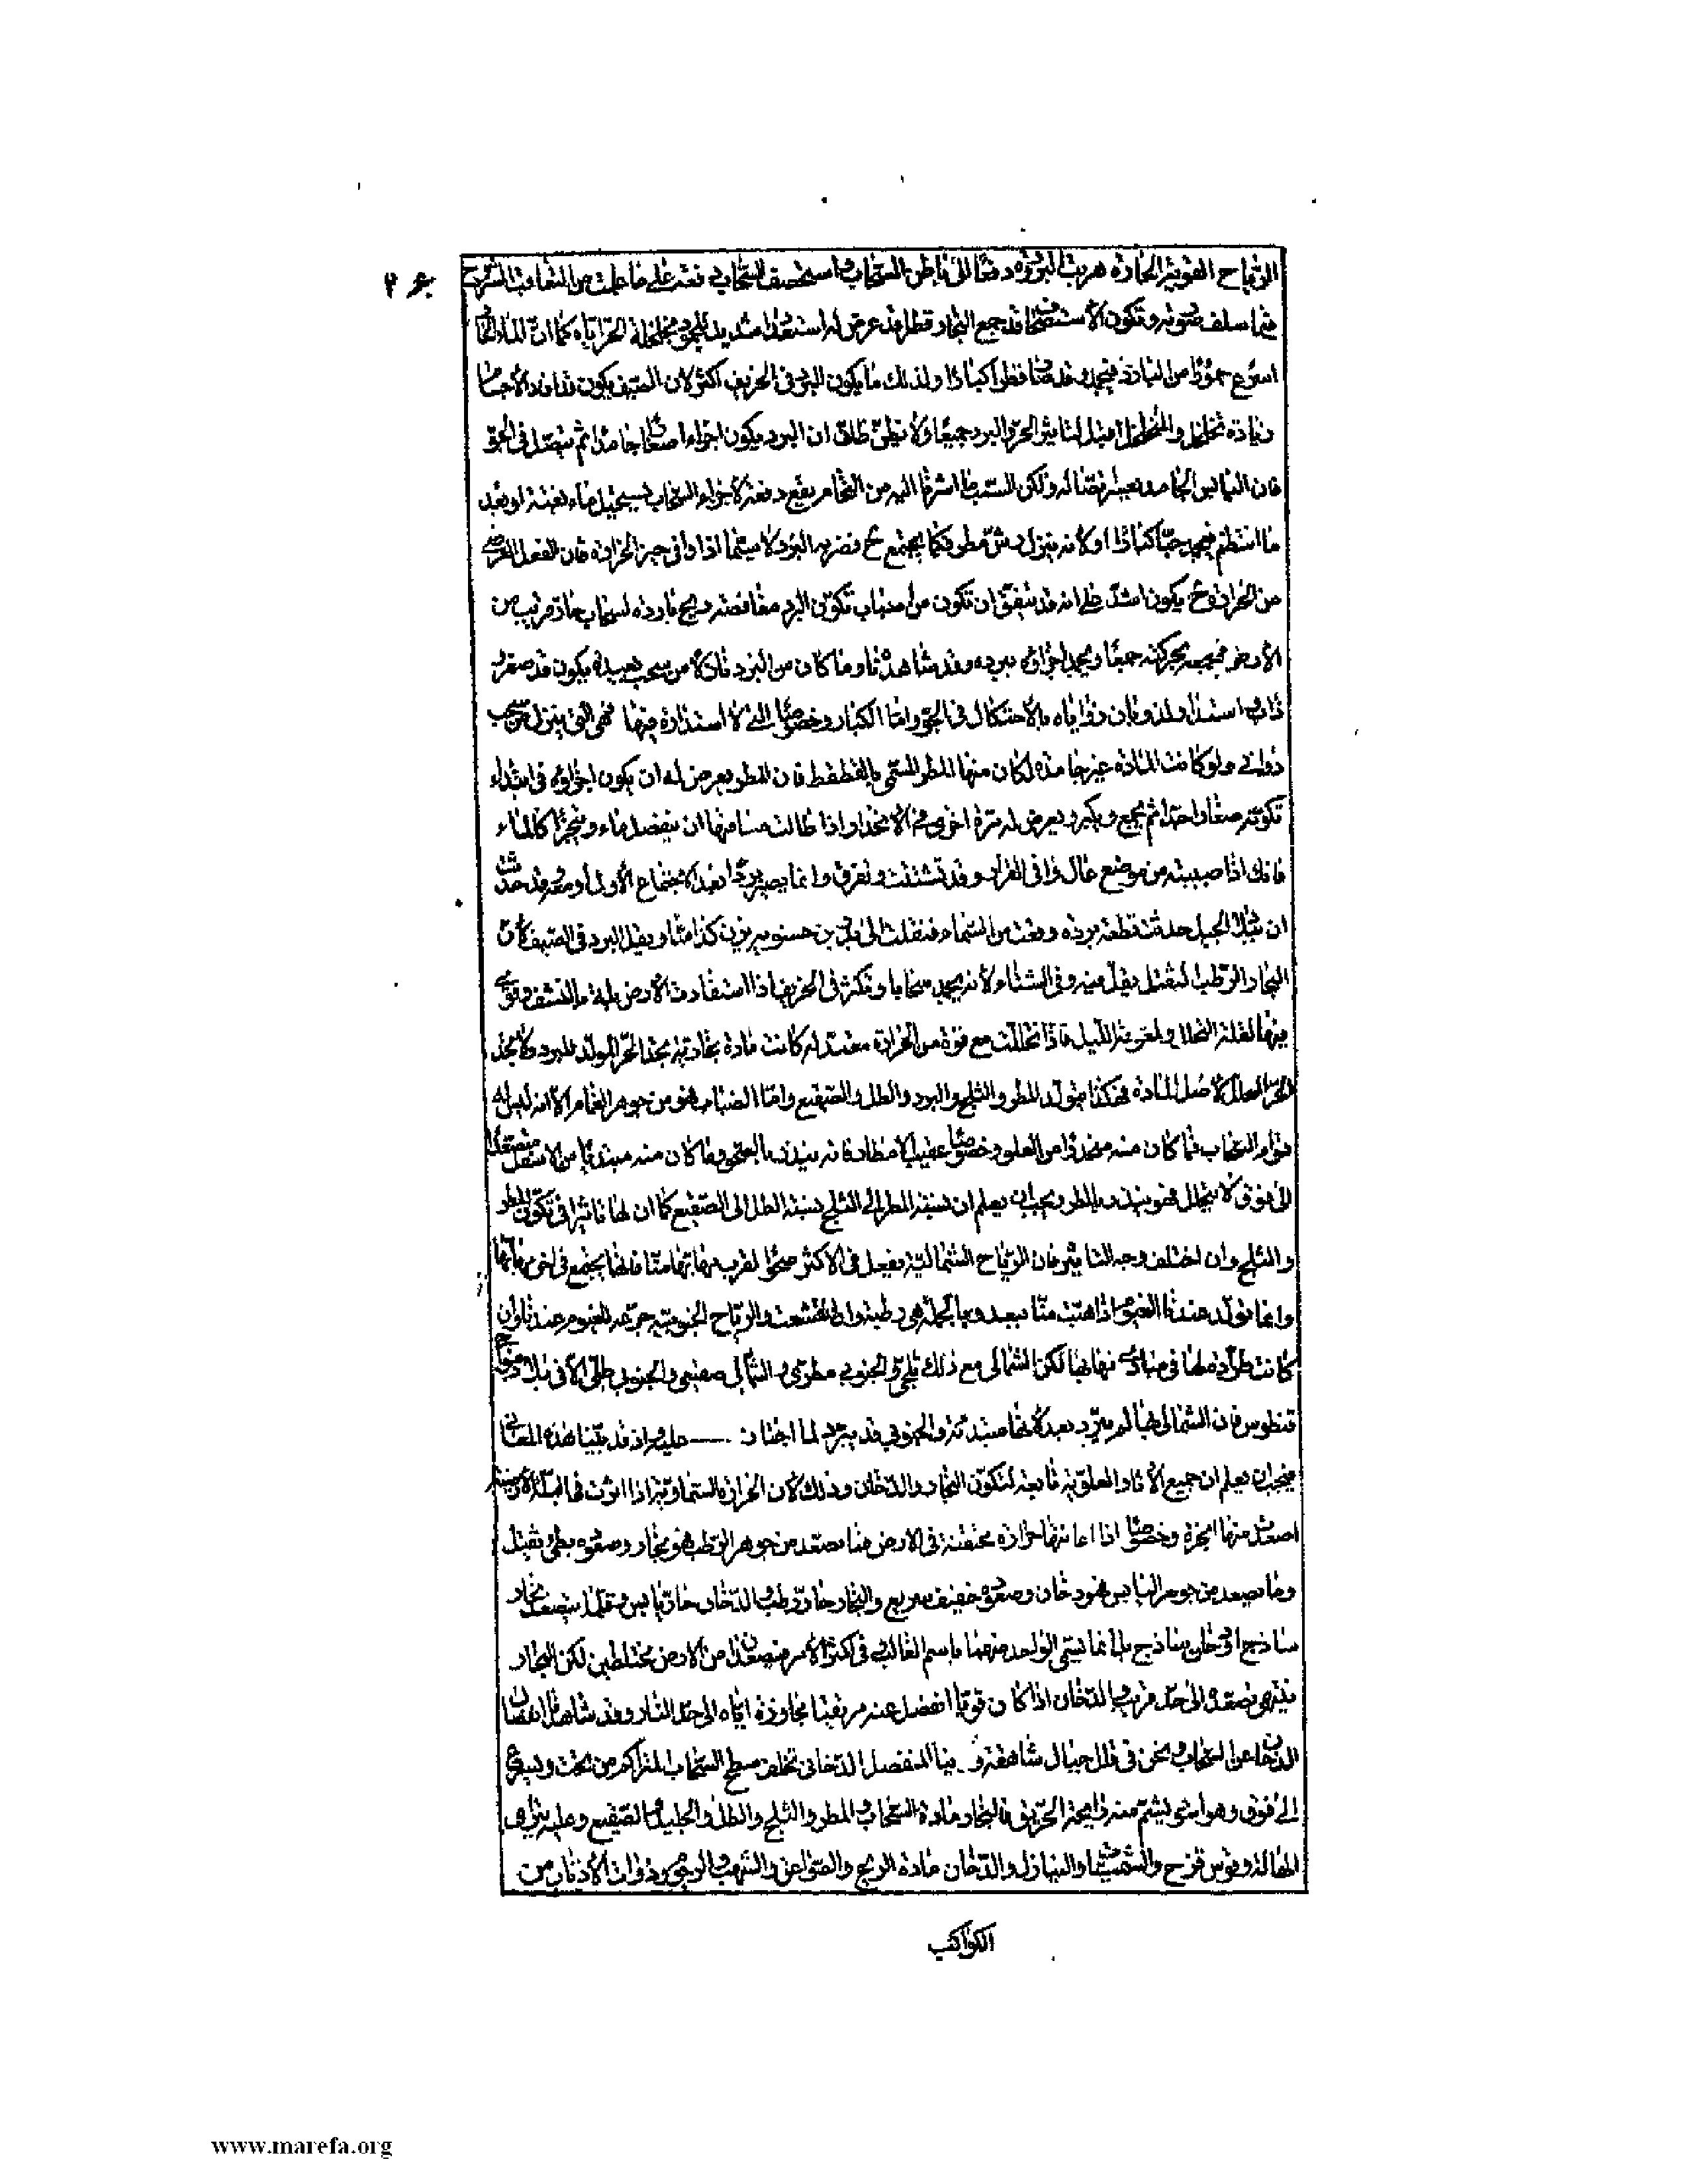 الرياح القوية الحارة هربت البرودة دفعة الى باطن السحاب واستحصف السحاب دفعة على ما علمت من التعاقب المشروح
فيما سلف ويكون الاستحصاف قد جمع البخار قطرا قد عرض له استعداد شديد للجمود بتخلخله الحر اياه كما ان الماء الحار
اسرع جمودا من البارد فيجمد وقد صار قطرا كبارا ولذلك ما يكون البرد في الخريف اكثر لان الصيف يكون قد افاد الاجسام
زيادة تخلخل والمتخلخل اقبل لتاثير الحر والبرد جميعا ولا يظن ظان ان البرد يكون اجزاء صغارا جامدا ثم يتصل في الجو
فان اليابس الجامد يعسر اتصاله ولكن السبب ما اشرنا اليه من التحام يقع دفعة لاجزاء السحاب تستحيل ماء بغتة او بعد
ما انتظم فيجمد حبا كبارا او لانه ينزل رش مطر فكما يجتمع ح فضربه البرد لا سيما اذا وافى حيز الحرارة فان الفعل العرضي
من الحرارة ح يكون اشد على انه قد يتفق ان تكون من اسباب تكون البرد مغافصة ريح باردة لسحاب حار قريب من
الارض فيجمعه بحركته جمعا ويجمد اجزاؤه ببرده وقد شاهدنا وما كان من البرد نازلا من سحب بعيدة يكون قد صغر
ذاب واستدار لذوبان زواياه بالاحتكاك في الجو واما الكبار وخصوصا التي لا استدارة فيها فهي التي ينزل من سحب
دوانى ولو كانت المادة غير جامدة لكان منها المطر المسمى بالقطقط فان المطر يعرض له ان يكون اجزاؤه في ابتداء
تكونه صغارا جدا ثم يجمع ويكبر ويعرض له مرة اخرى في الانحدار اذا طالت مسافتها ان ينفصل ماء ويتجزأ كالماء
فانك اذا صببته من موضع عال وافى القرار وقد تشتت وتفرق وانما يصير بردا بعد الاجتماع الاول او معه وقد حدثت
ان ببلاد الجبل حدثت قطعة بردة وقعت من السماء فنقلت الى بدر بن حسنويه يزن كذا منا ويقل البرد في الصيف لان
البخار الرطب الثقيل يقل فيه وفي الشتاء لانه يجمد سحابا ويكثر في الخريف اذا استفادت الارض بلة ما لتنشف وتقوى
فيها لقلة التحلل ولمعونة الليل فاذا تحللت مع قوة من الحرارة معتدلة كانت مادة بخارية يجد الحر المولد للبرد ولا يجد
الحر المحلل لاصل المادة فهكذا يتولد المطر والثلج والبرد والطل والصقيع واما الضباب فهو من جوهر الغمام الا انه ليس له
قوام السحاب فما كان منه منحدرا من العلو وخصوصا عقيب الامطار فانه ينذر بالصحو وما كان منه مبتدئا من الاسفل متصعدا
الى فوق لا يتحلل فهو ينذر بالمطر ويجب ان يعلم ان نسبة المطر الى الثلج نسبة الطل الى الصقيع كما ان لها تاثيرا في تكون المطر
والثلج وان اختلف وجه التاثير فان الرياح الشمالية يفعل في الاكثر صحوا لقرب مهابها منا فانها يجتمع في اخر مهابها
وانما تولد عندنا الغيوم اذا هبت منا ببعد وبالجملة هي رطبة وان قشعت والرياح الجنوبية جماعة للغيوم عندنا وان
كانت طرادة لها في مبادى مهابها لكن الشمالى مع ذلك ثلجي والجنوبي مطرى والشمالى صقيعي والجنوبي طلى الا في بلاد ونواحي
قنطوس فان الشمالى هنا لم يبرد بعد لانها مبتدئة والجنوبي قد يبرد لما اجتاز عليه واذ قد بينا هذه المعانى
فيجب ان يعلم ان جميع الاثار العلوية تابعة لتكون البخار والدخان وذلك لان الحرارة السماوية اذا اثرت في البلة الارضية
اصعدت منها ابخرة وخصوصا اذا اعانتها حرارة محتقنة في الارض فما يصعد من جوهر الرطب فهو بخار وصعوده بطى ثقيل
وما يصعد من جوهر اليابس فهو دخان وصعوده خفيف سريع والبخار حار رطب والدخان حار يابس وقلما يتصعد بخار
ساذج او دخان ساذج بل انما يسمى الواحد منهما باسم الغالب في اكثر الامر يتصعدان من الارض مختلطين لكن البخار
ينتهى تصعده الى حد قريب والدخان اذا كان قويا انفصل عنه مرتقيا مجاوزة اياه الى حد النار وقد شاهدنا انفصال
الدخان عن السحاب ونحن في قلل جبال شاهقة و بينا المنفصل الدخانى تخلف سطح السحاب المتراكم من تحت ويسرع
الى فوق وهو اسود يشم منه رايحة الحريق فالبخار مادة السحاب والمطر والثلج والطل والجليد والصقيع وعليه يتراى
الهالة وقوس قزح والشميسات والنيازك والدخان مادة الريح والصواعق والشهب والرجوم وذوات الاذناب من
الكواكب
www.marefa.org